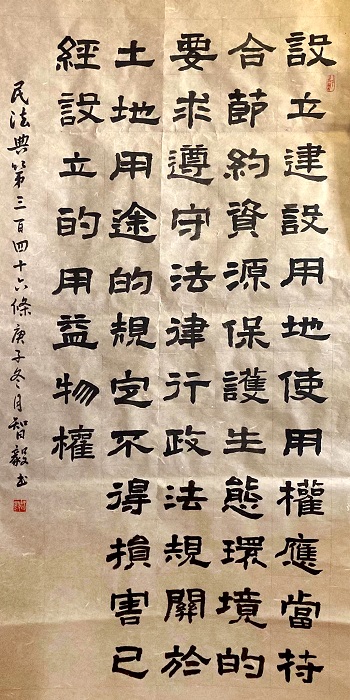 設立建設用地使用權應當持
合節約資源保護生態環境的
要求遵守法律行政法規關於
土地用途的規定不得損害已
經設立的用益物權
民法典第三百四十六條庚子冬月智毅书